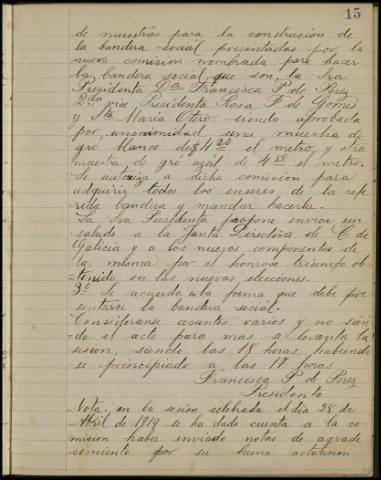 15
de muestras para la construcion de
la bandera social presentadas por la
nueva comision nombrada para hacer
la bandera social, que son, la Sra
Presidenta Dña Francisca P de Perez
2da vice Presidenta Rosa F de Gomes
y Sta Maria Otero siendo aprobada
por unanimidad una muestra de
gró blanco de $4 20 el metro, y otra
muestra, de gró azul de 4 80 el metro.
Se autoriza a dicha comision para
adquirir todos los enseres de la refe
rida bandera y mandar hacerla.
La Sra Presidenta propone enviar un
saludo a la Junta Directiva de C de
Galicia y a los nuevos componentes de
la misma por el honroso triunfo ob-
tenido en las nuevas elecciones.
3º Se acuerda la forma que debe pre
sentarse la bandera social.
Consideranse asuntos varios y no sien
do el acto para mas se levanta la
sesion, siendo las 18 horas, habiendo
se principiado a las 17 horas
Francisca P de Perez
Presidenta
Nota. en la sesion celebrada el dia 28 de
Abril de 1919 se ha dado cuenta a la co-
mision haber enviado notas de agrade
cimiento por su buena actuacion